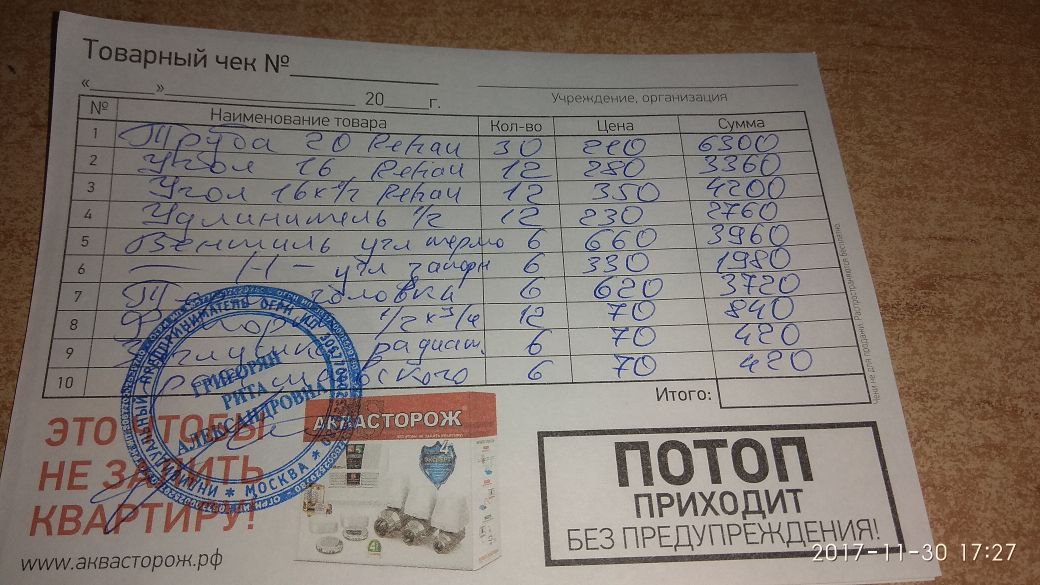 Товарный чек №
« » 20 г.
Учреждение, организация
№ Наименование товара Кол-во Цена Сумма
1 Труба 20 Rehau 30 210 6300
2 Угол 16 Rehau 12 280 3360
3 Угол 16x1/2 Rehau 12 350 4200
4 Удлинитель 1/2 12 230 2760
5 Вентиль угл термо 6 660 3960
6 — // — угл запорн 6 330 1980
7 головка 6 620 3720
8 1/2 x 3/4 12 70 840
9 радиат. 6 70 420
10 6 70 420
Итого:
Чеки не для продажи. Распространяются бесплатно.
ИНДИВИДУАЛЬНЫЙ ПРЕДПРИНИМАТЕЛЬ
ГРИГОРЯН
РИТА
АЛЕКСАНДРОВНА
* МОСКВА *
ЭТО ЧТОБЫ
НЕ ЗАЛИТЬ
КВАРТИРУ!
www.аквасторож.рф
АКВАСТОРОЖ
ЭКСПЕРТ
ПОТОП
ПРИХОДИТ
БЕЗ ПРЕДУПРЕЖДЕНИЯ!
2017-11-30 17:27